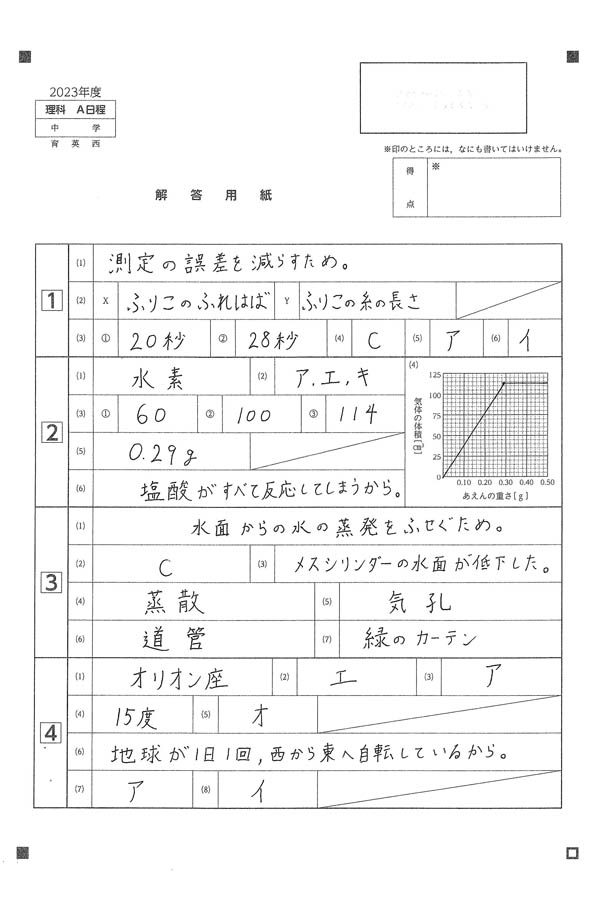 2023年度
理科 A日程
中 学
育 英 西
※印のところには，なにも書いてはいけません。
得点 ※
解 答 用 紙
1
(1) 測定の誤差を減らすため。
(2) X ふりこのふれはば Y ふりこの糸の長さ
(3) ① 20秒 ② 28秒 (4) C (5) ア (6) イ
2
(1) 水素 (2) ア，エ，キ
(3) ① 60 ② 100 ③ 114
(4)
気体の体積〔cm³〕
125
100
75
50
25
0
0.10 0.20 0.30 0.40 0.50
あえんの重さ〔g〕
(5) 0.29g
(6) 塩酸がすべて反応してしまうから。
3
(1) 水面からの水の蒸発をふせぐため。
(2) C (3) メスシリンダーの水面が低下した。
(4) 蒸散 (5) 気孔
(6) 道管 (7) 緑のカーテン
4
(1) オリオン座 (2) エ (3) ア
(4) 15度 (5) オ
(6) 地球が1日1回，西から東へ自転しているから。
(7) ア (8) イ